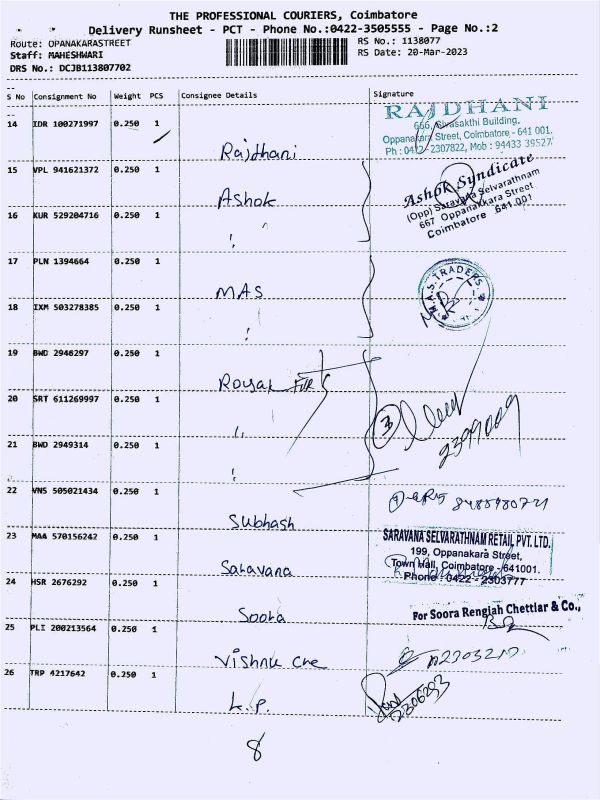 THE PROFESSIONAL COURIERS, Coimbatore
Delivery Runsheet - PCT - Phone No.:0422-3505555 - Page No.:2
Route: OPANAKARASTREET RS No.: 1138077
Staff: MAHESHWARI RS Date: 20-Mar-2023
DRS No.: DCJB113807702
S No Consignment No Weight PCS Consignee Details Signature
14 IDR 100271997 0.250 1 Rajdhani
RAJDHANI
666, Sivasakthi Building,
Oppanakara Street, Coimbatore - 641 001.
Ph : 0422 - 2307822, Mob : 94433 39527
15 VPL 941621372 0.250 1 Ashok
Ashok Syndicate
(Opp) Saravana Selvarathnam
667 Oppanakkara Street
Coimbatore 641 001
16 KUR 529204716 0.250 1 "
17 PLN 1394664 0.250 1 MAS
M.A.S. TRADERS
18 IXM 503278385 0.250 1 "
19 BWD 2946297 0.250 1 Royal
20 SRT 611269997 0.250 1 "
3
2399009
21 BWD 2949314 0.250 1 "
22 VNS 505021434 0.250 1 Subhash
23 MAA 570156242 0.250 1 Saravana
SARAVANA SELVARATHNAM RETAIL PVT. LTD.
199, Oppanakara Street,
Town Hall, Coimbatore - 641001.
Phone : 0422 - 2303777
24 HSR 2676292 0.250 1 Soora
For Soora Rengiah Chettiar & Co.,
25 PLI 200213564 0.250 1 Vishnu Che
26 TRP 4217642 0.250 1 L.P.
8